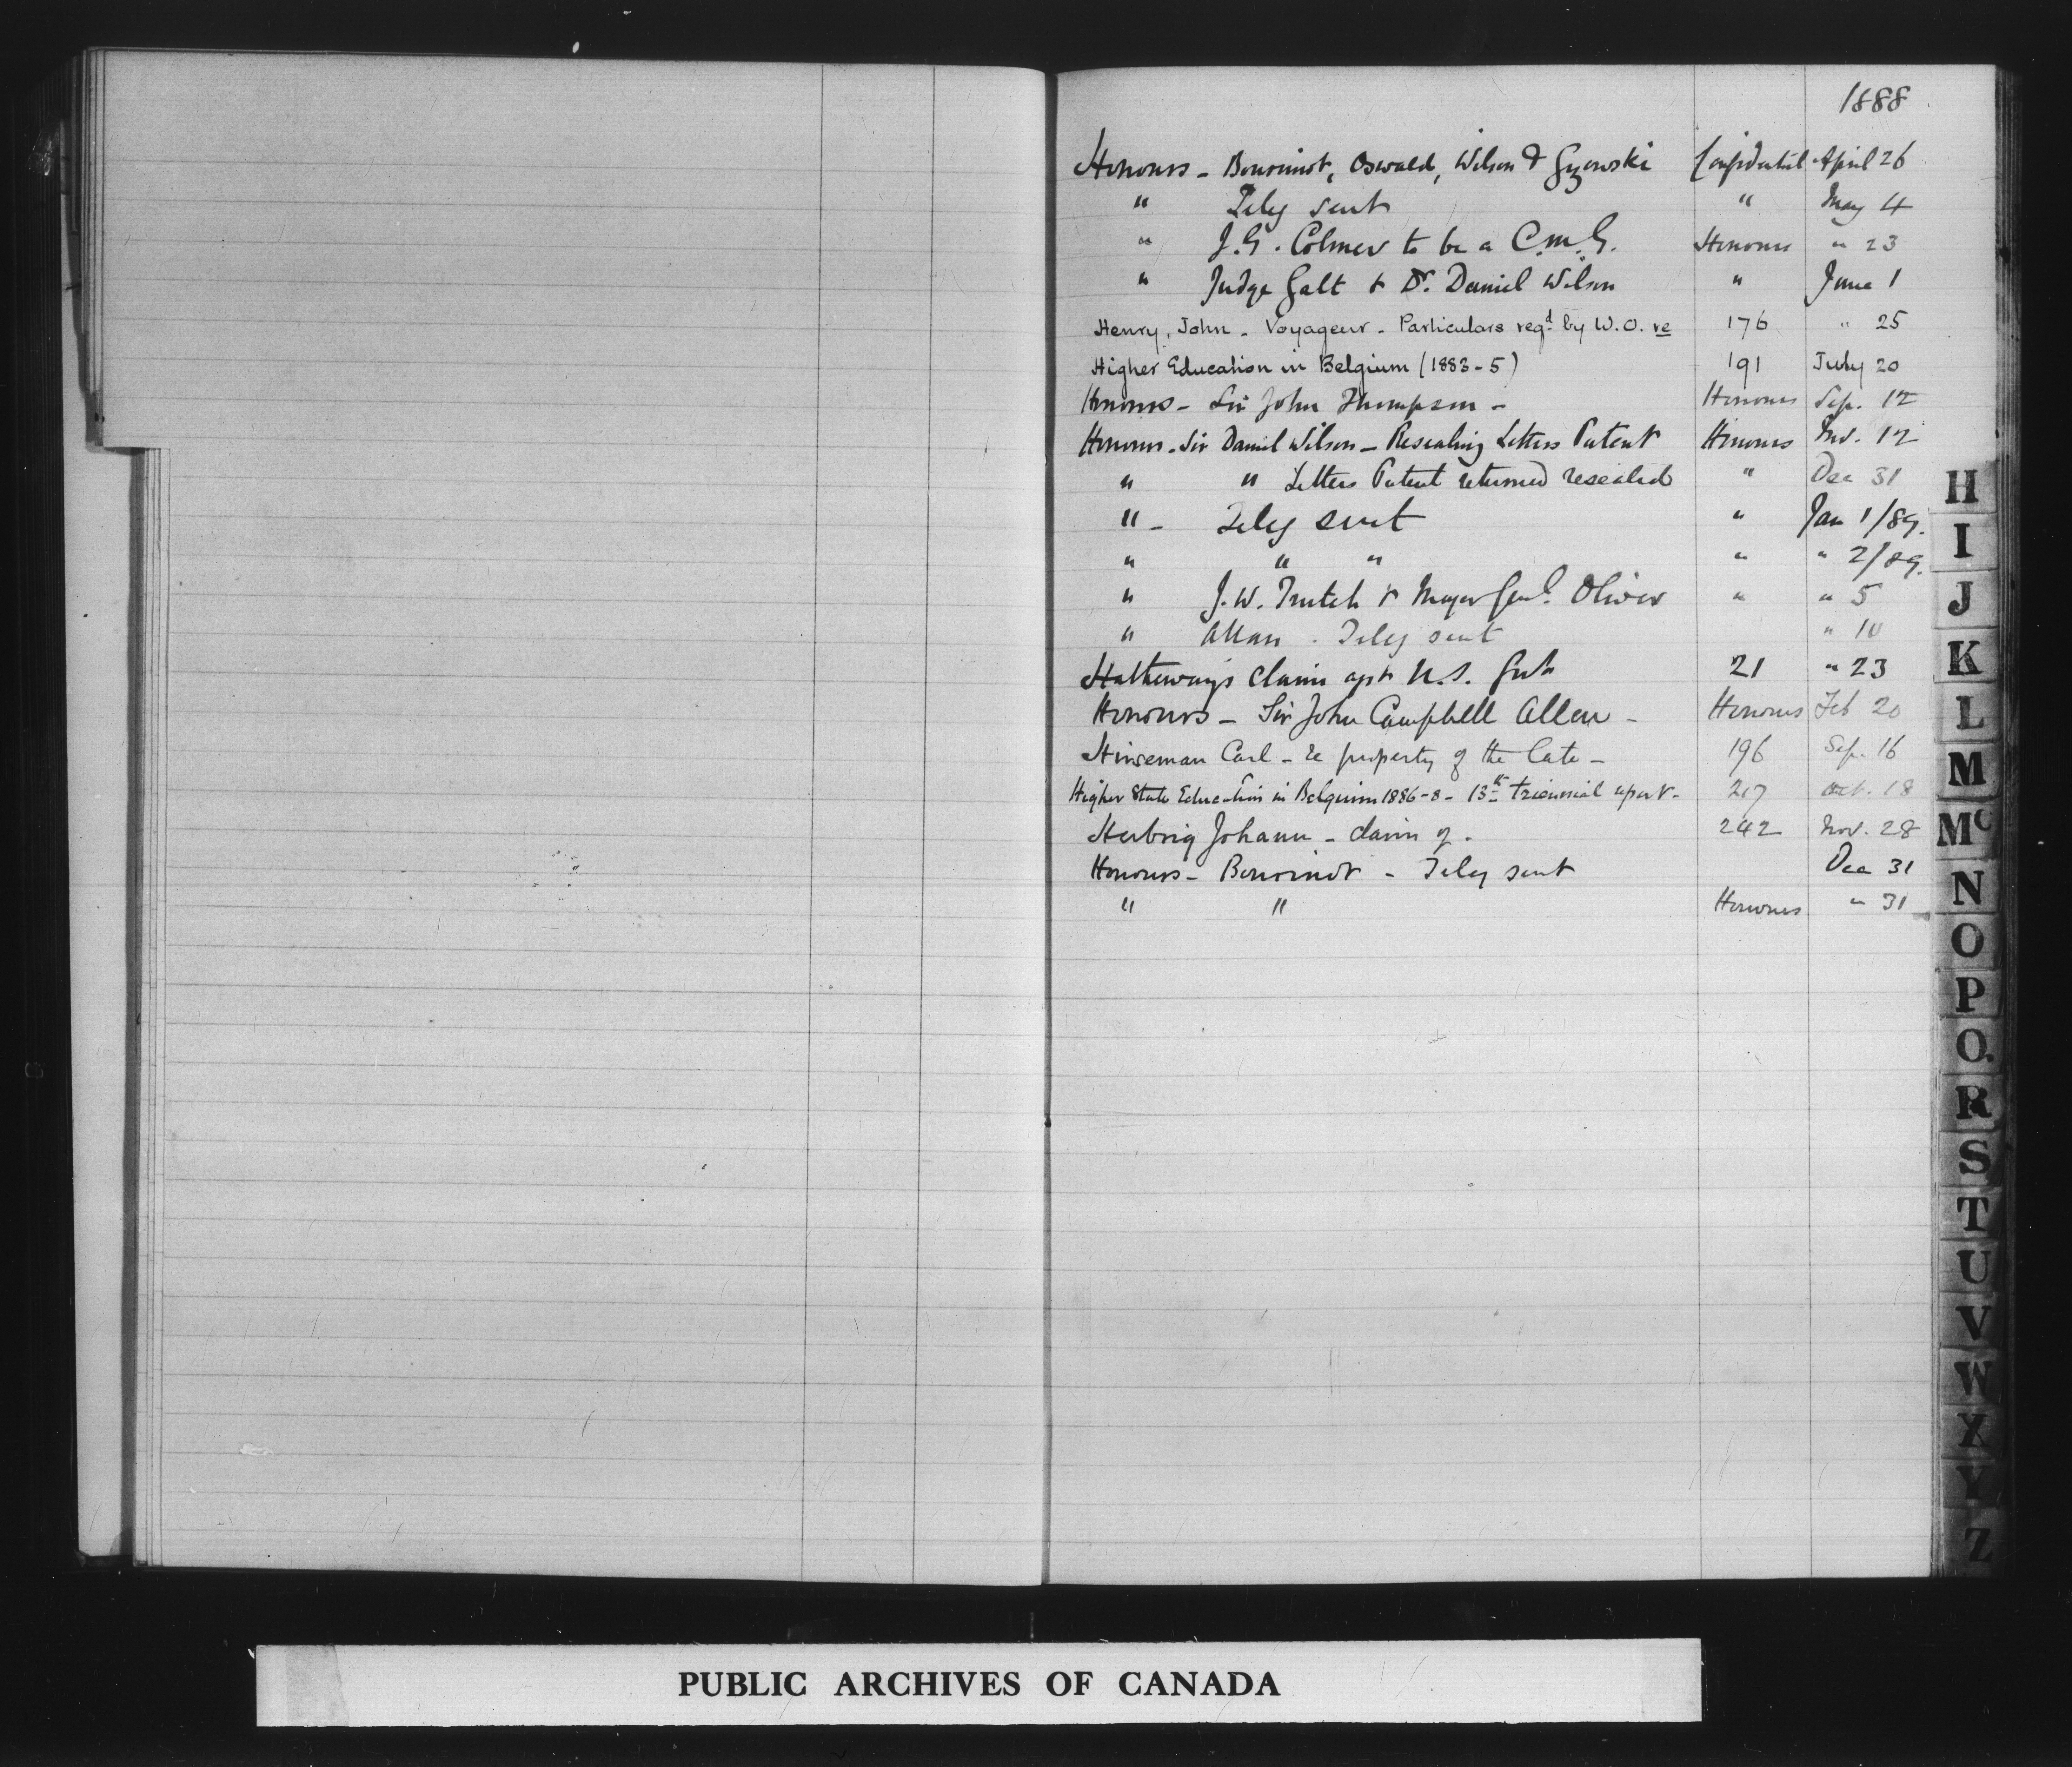 1888
Honours - Bourinot, Oswald, Wilson & Gzowski Confidential April 26
" Teleg sent " May 4
" J.G. Colmer to be a C.M.G. Honours " 23
" Judge Galt & Dr. Daniel Wilson " June 1
Henry, John - Voyageur - Particulars reqd by W.O. re 176 " 25
Higher Education in Belgium (1883-5) 191 July 20
Honours - Sir John Thompson - Honours Sep. 12
Honours - Sir Daniel Wilson - Resealing Letters Patent Honours Nov. 12
" " Letters Patent returned resealed " Dec 31
" - Teleg sent " Jan 1/89.
" " " " " 2/89.
" J.W. Trutch & Major Genl. Oliver " " 5
" Allan . Teleg sent " 10
Hatheway's claim agst U.S. Govt 21 " 23
Honours - Sir John Campbell Allen - Honours Feb 20
Hinseman Carl - re property of the late - 196 Sep. 16
Higher State Education in Belgium 1886-8 - 13th triennial report - 217 Oct. 18
Herbrig Johann - claim of - 242 Nov. 28
Honours - Bourinot - Teleg sent Dec 31
" " Honours " 31
H
I
J
K
L
M
Mc
N
O
P
Q.
R
S
T
U
V
W
X
Y
Z
PUBLIC ARCHIVES OF CANADA